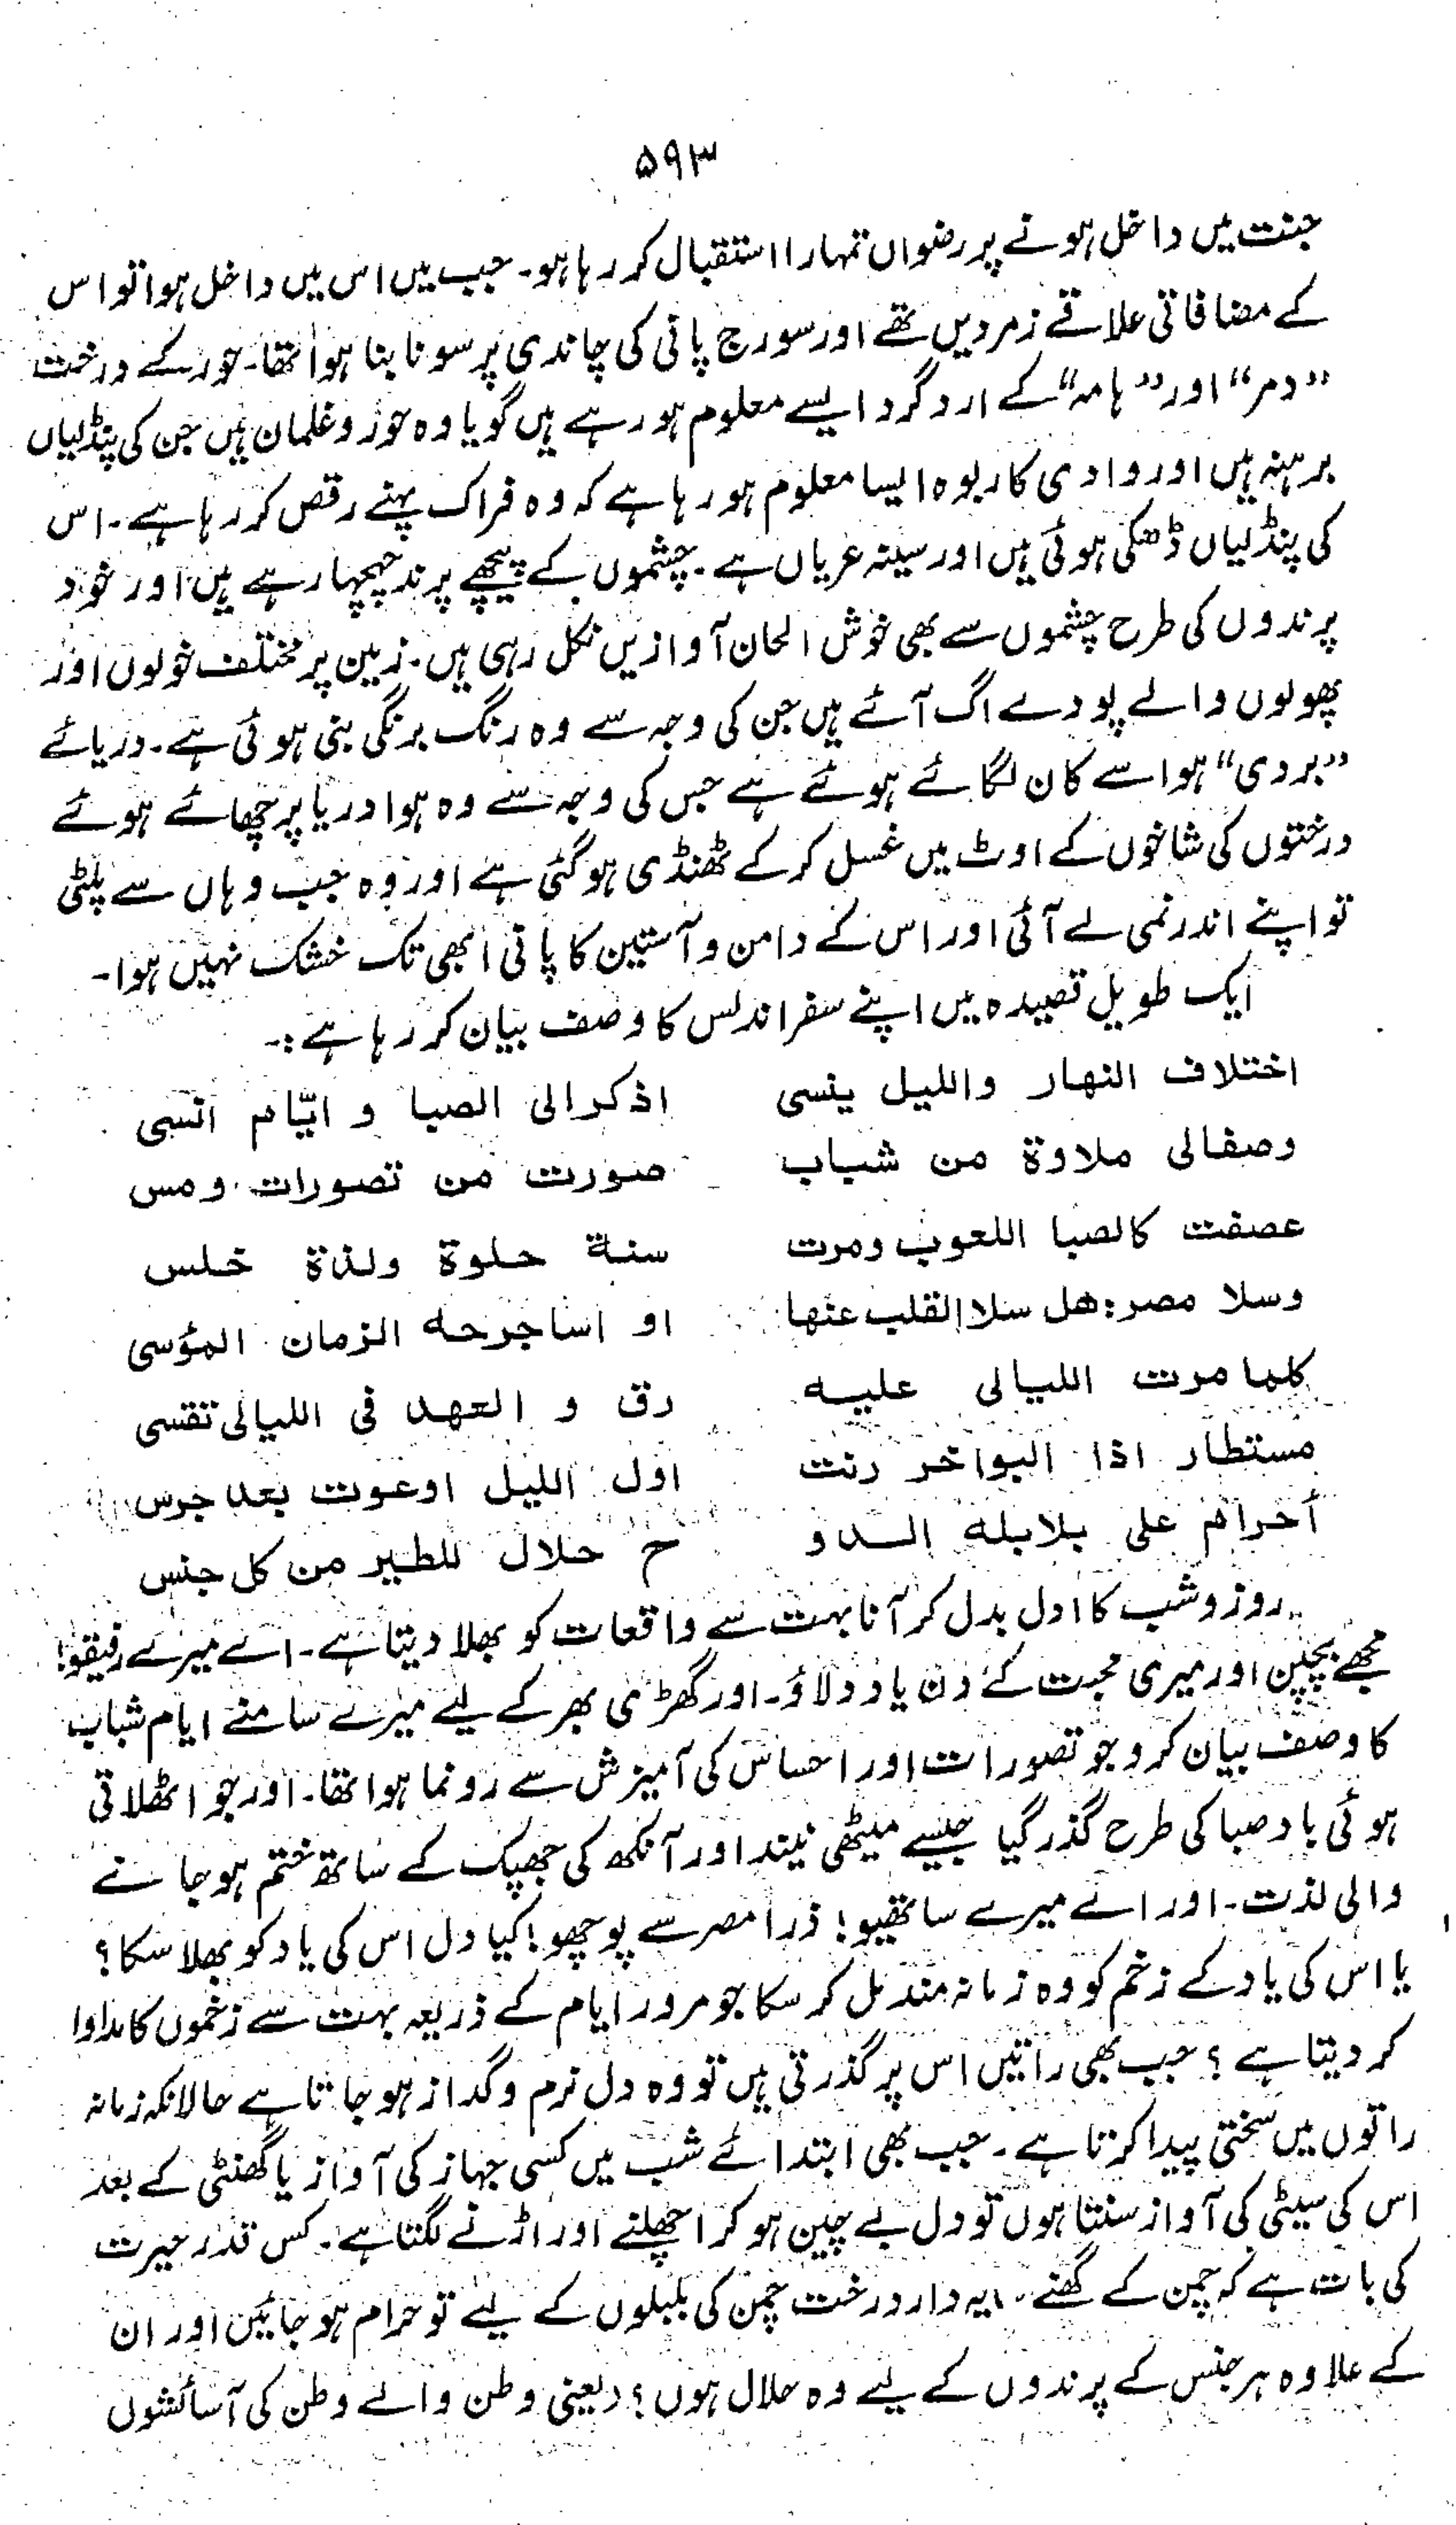 ۵۹۳
جنت میں داخل ہونے پر رضواں تمہارا استقبال کر رہا ہو۔ جب میں اس میں داخل ہوا تو اس
کے مضافاتی علاقے زمردیں تھے اور سورج پانی کی چاندی پر سونا بنا ہوا تھا۔ حور کے درخت
”دمر“ اور ”ہامہ“ کے ارد گرد ایسے معلوم ہو رہے ہیں گویا وہ حور و غلمان ہیں جن کی پنڈلیاں
برہنہ ہیں اور وادی کا ربوہ ایسا معلوم ہو رہا ہے کہ وہ فراک پہنے رقص کر رہا ہے۔ اس
کی پنڈلیاں ڈھکی ہوئی ہیں اور سینہ عریاں ہے۔ چشموں کے پیچھے پرند چہچہا رہے ہیں اور خود
پرندوں کی طرح چشموں سے بھی خوش الحان آوازیں نکل رہی ہیں۔ زمین پر مختلف خولوں اور
پھولوں والے پودے اگ آئے ہیں جن کی وجہ سے وہ رنگ برنگی بنی ہوئی ہے۔ دریائے
”بردی“ ہوا سے کان لگائے ہوئے ہے جس کی وجہ سے وہ ہوا دریا پر چھائے ہوئے
درختوں کی شاخوں کے اوٹ میں غسل کر کے ٹھنڈی ہو گئی ہے اور وہ جب وہاں سے پلٹی
تو اپنے اندر نمی لے آئی اور اس کے دامن و آستین کا پانی ابھی تک خشک نہیں ہوا۔
ایک طویل قصیدہ میں اپنے سفر اندلس کا وصف بیان کر رہا ہے:۔
اختلاف النهار والليل ينسى اذكرالى الصبا و ايّام انسى
وصفالى ملاوة من شباب صورت من تصورات ومس
عصفت كالصبا اللعوب ومرت سنة حلوة ولذة خلس
وسلا مصر: هل سلا القلب عنها او اساجرحه الزمان المؤسى
كلما مرت الليالى عليه رق و العهد فى الليالى تقسى
مستطار اذا البواخر رنت اول الليل اوعوت بعد جرس
أحرام على بلابله الدو ح حلال للطير من كل جنس
روز و شب کا ادل بدل کر آنا بہت سے واقعات کو بھلا دیتا ہے۔ اے میرے رفیقو!
مجھے بچپن اور میری محبت کے دن یاد دلاؤ۔ اور گھڑی بھر کے لیے میرے سامنے ایام شباب
کا وصف بیان کرو جو تصورات اور احساس کی آمیزش سے رونما ہوا تھا۔ اور جو اٹھلاتی
ہوئی باد صبا کی طرح گذر گیا جیسے میٹھی نیند اور آنکھ کی جھپک کے ساتھ ختم ہو جانے
والی لذت۔ اور اے میرے ساتھیو! ذرا مصر سے پوچھو! کیا دل اس کی یاد کو بھلا سکا؟
یا اس کی یاد کے زخم کو وہ زمانہ مندمل کر سکا جو مرور ایام کے ذریعہ بہت سے زخموں کا مداوا
کر دیتا ہے؟ جب بھی راتیں اس پر گذرتی ہیں تو وہ دل نرم و گداز ہو جاتا ہے حالانکہ زمانہ
راتوں میں سختی پیدا کرتا ہے۔ جب بھی ابتدائے شب میں کسی جہاز کی آواز یا گھنٹی کے بعد
اس کی سیٹی کی آواز سنتا ہوں تو دل بے چین ہو کر اچھلنے اور اڑنے لگتا ہے۔ کس قدر حیرت
کی بات ہے کہ چمن کے گھنے۔ ایہ دار درخت چمن کی بلبلوں کے لیے تو حرام ہو جائیں اور ان
کے علاوہ ہر جنس کے پرندوں کے لیے وہ حلال ہوں؟ (یعنی وطن والے وطن کی آسائشوں